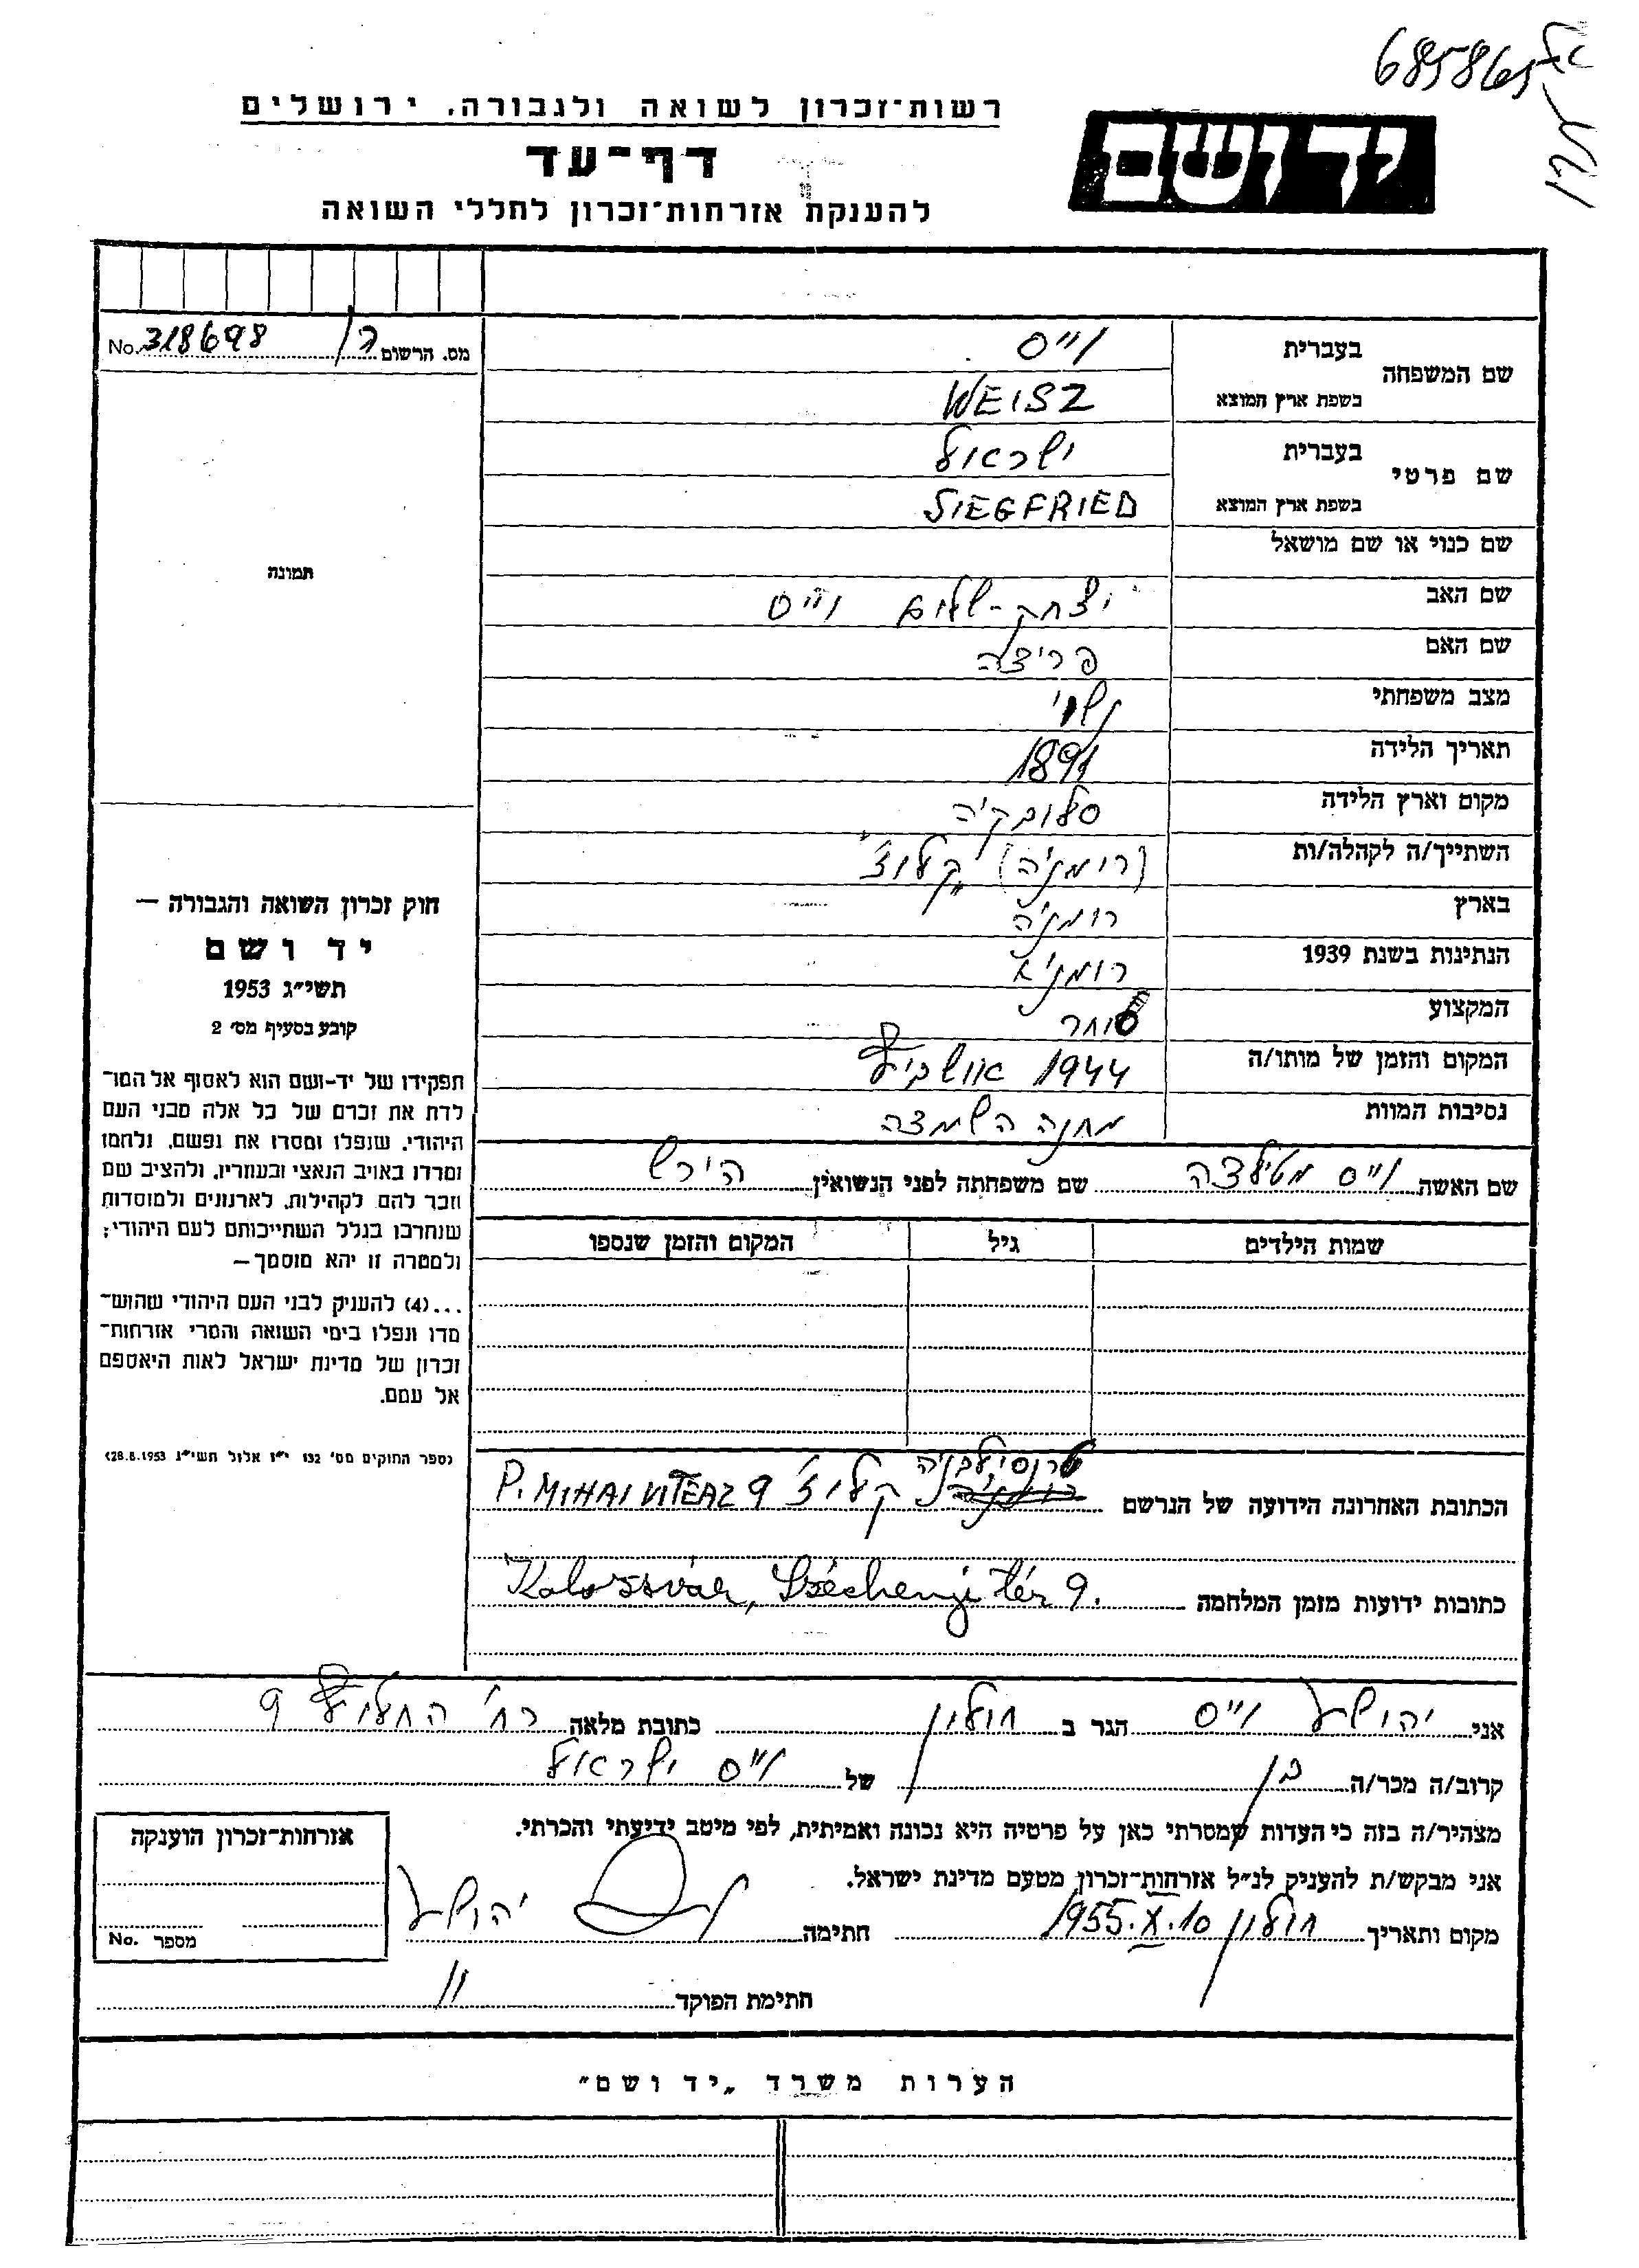 685865
יד ושם
רשות־זכרון לשואה ולגבורה. ירושלים
דף־עד
להענקת אזרחות־זכרון לחללי השואה
מס. הרשום No. 318698
שם המשפחה
בעברית וייס
בשפת ארץ המוצא WEISZ
שם פרטי
בעברית ישראל
בשפת ארץ המוצא SIEGFRIED
שם כנוי או שם מושאל
שם האב יצחק-שלום וייס
שם האם פריצה
מצב משפחתי נשוי
תאריך הלידה 1891
מקום וארץ הלידה סלובקיה
השתייך/ה לקהלה/ות (רומניה) קלוז'
בארץ רומניה
הנתינות בשנת 1939 רומניא
המקצוע סוחר
המקום והזמן של מותו/ה 1944 אושביץ
נסיבות המוות מחנה השמצה
שם האשה וייס מטילצה שם משפחתה לפני הנשואין הירש
שמות הילדים גיל המקום והזמן שנספו
תמונה
חוק זכרון השואה והגבורה —
יד ושם
תשי״ג 1953
קובע בסעיף מס׳ 2
תפקידו של יד-ושם הוא לאסוף אל המו־
לדת את זכרם של כל אלה מבני העם
היהודי, שנפלו ומסרו את נפשם, נלחמו
ומרדו באויב הנאצי ובעוזריו, ולהציב שם
וזכר להם, לקהילות, לארגונים ולמוסדות
שנחרבו בגלל השתייכותם לעם היהודי;
ולמטרה זו יהא מוסמך—
...(4) להעניק לבני העם היהודי שהוש־
מדו ונפלו בימי השואה והמרי אזרחות־
זכרון של מדינת ישראל לאות היאספם
אל עמם.
(ספר החוקים מס׳ 132 י״ז אלול תשי״ג 28.8.1953)
טרנסילבניה
הכתובת האחרונה הידועה של הנרשם קלוז' P. MIHAI VITEAZ 9
כתובות ידועות מזמן המלחמה Kolozsvár, Széchenyi tér 9.
אני יהושע וייס הגר ב חולון כתובת מלאה רח' החלוץ 9
קרוב/ה מכר/ה בן של וייס ישראל
מצהיר/ה בזה כי העדות שמסרתי כאן על פרטיה היא נכונה ואמיתית, לפי מיטב ידיעתי והכרתי.
אני מבקש/ת להעניק לנ״ל אזרחות־זכרון מטעם מדינת ישראל.
מקום ותאריך חולון 10.X.1955 חתימה יהושע
חתימת הפוקד
אזרחות־זכרון הוענקה
מספר No.
הערות משרד „יד ושם״